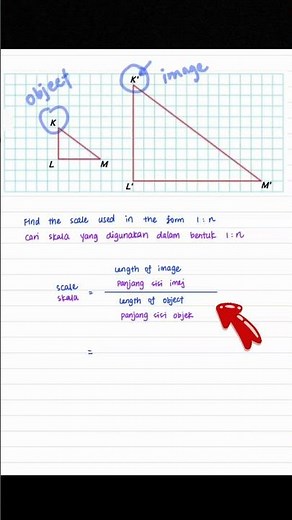 object
image
K
K'
L
M
L'
M'
Find the scale used in the form 1:n
Cari skala yang digunakan dalam bentuk 1:n
scale
skala
=
length of image
panjang sisi imej
length of object
panjang sisi objek
=